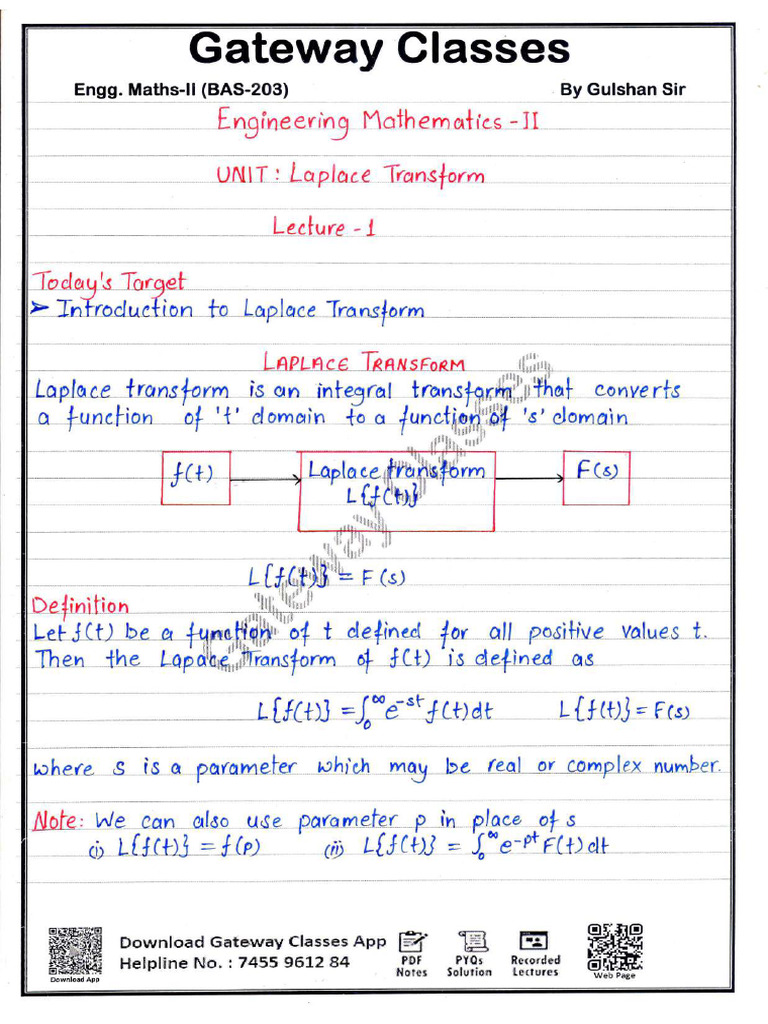 Gateway Classes
Engg. Maths-II (BAS-203) By Gulshan Sir
Engineering Mathematics - II
UNIT : Laplace Transform
Lecture - 1
Today's Target
➤ Introduction to Laplace Transform
LAPLACE TRANSFORM
Laplace transform is an integral transform that converts
a function of 't' domain to a function of 's' domain
f(t) → Laplace transform → F(s)
L{f(t)}
L{f(t)} = F(s)
Definition
Let f(t) be a function of t defined for all positive values t.
Then the Lapace Transform of f(t) is defined as
L{f(t)} = ∫₀^∞ e^-st f(t) dt L{f(t)} = F(s)
where s is a parameter which may be real or complex number.
Note: We can also use parameter p in place of s
(i) L{f(t)} = f(p) (ii) L{f(t)} = ∫₀^∞ e^-pt F(t) dt
Gateway Classes
Download Gateway Classes App
Helpline No. : 7455 9612 84
Download App
PDF
Notes
PYQs
Solution
Recorded
Lectures
Web Page